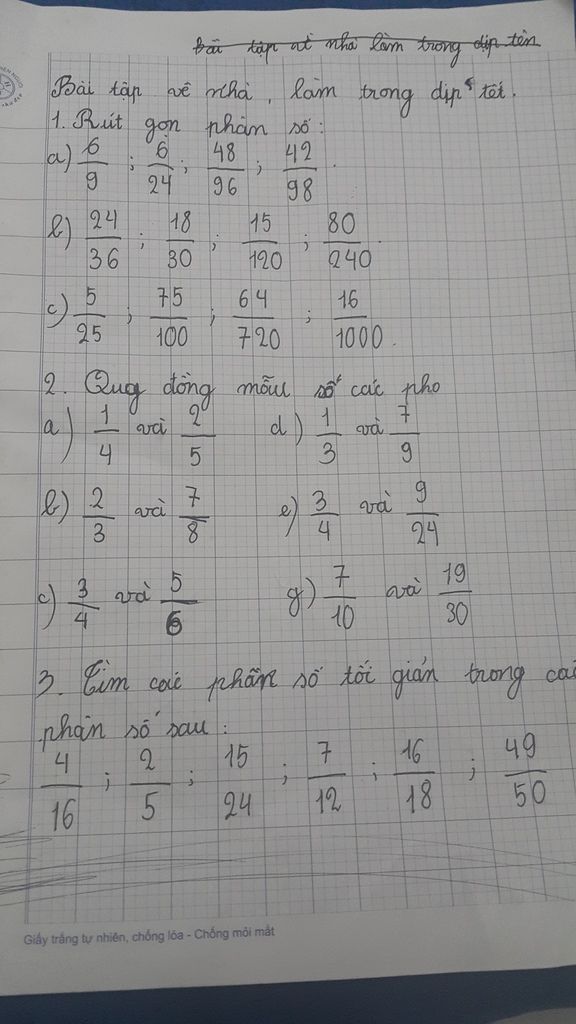 Bài tập về nhà làm trong dịp tên
Bài tập về nhà, làm trong dịp tết.
1. Rút gọn phân số:
a) 6/9 ; 6/24 ; 48/96 ; 42/98.
b) 24/36 ; 18/30 ; 15/120 ; 80/240.
c) 5/25 ; 75/100 ; 64/720 ; 16/1000.
2. Quy đồng mẫu số các pho
a) 1/4 và 2/5 d) 1/3 và 7/9
b) 2/3 và 7/8 e) 3/4 và 9/24
c) 3/4 và 5/6 g) 7/10 và 19/30
3. Tìm các phân số tối giản trong các
phân số sau:
4/16 ; 2/5 ; 15/24 ; 7/12 ; 16/18 ; 49/50
Giấy trắng tự nhiên, chống lóa - Chống mỏi mắt